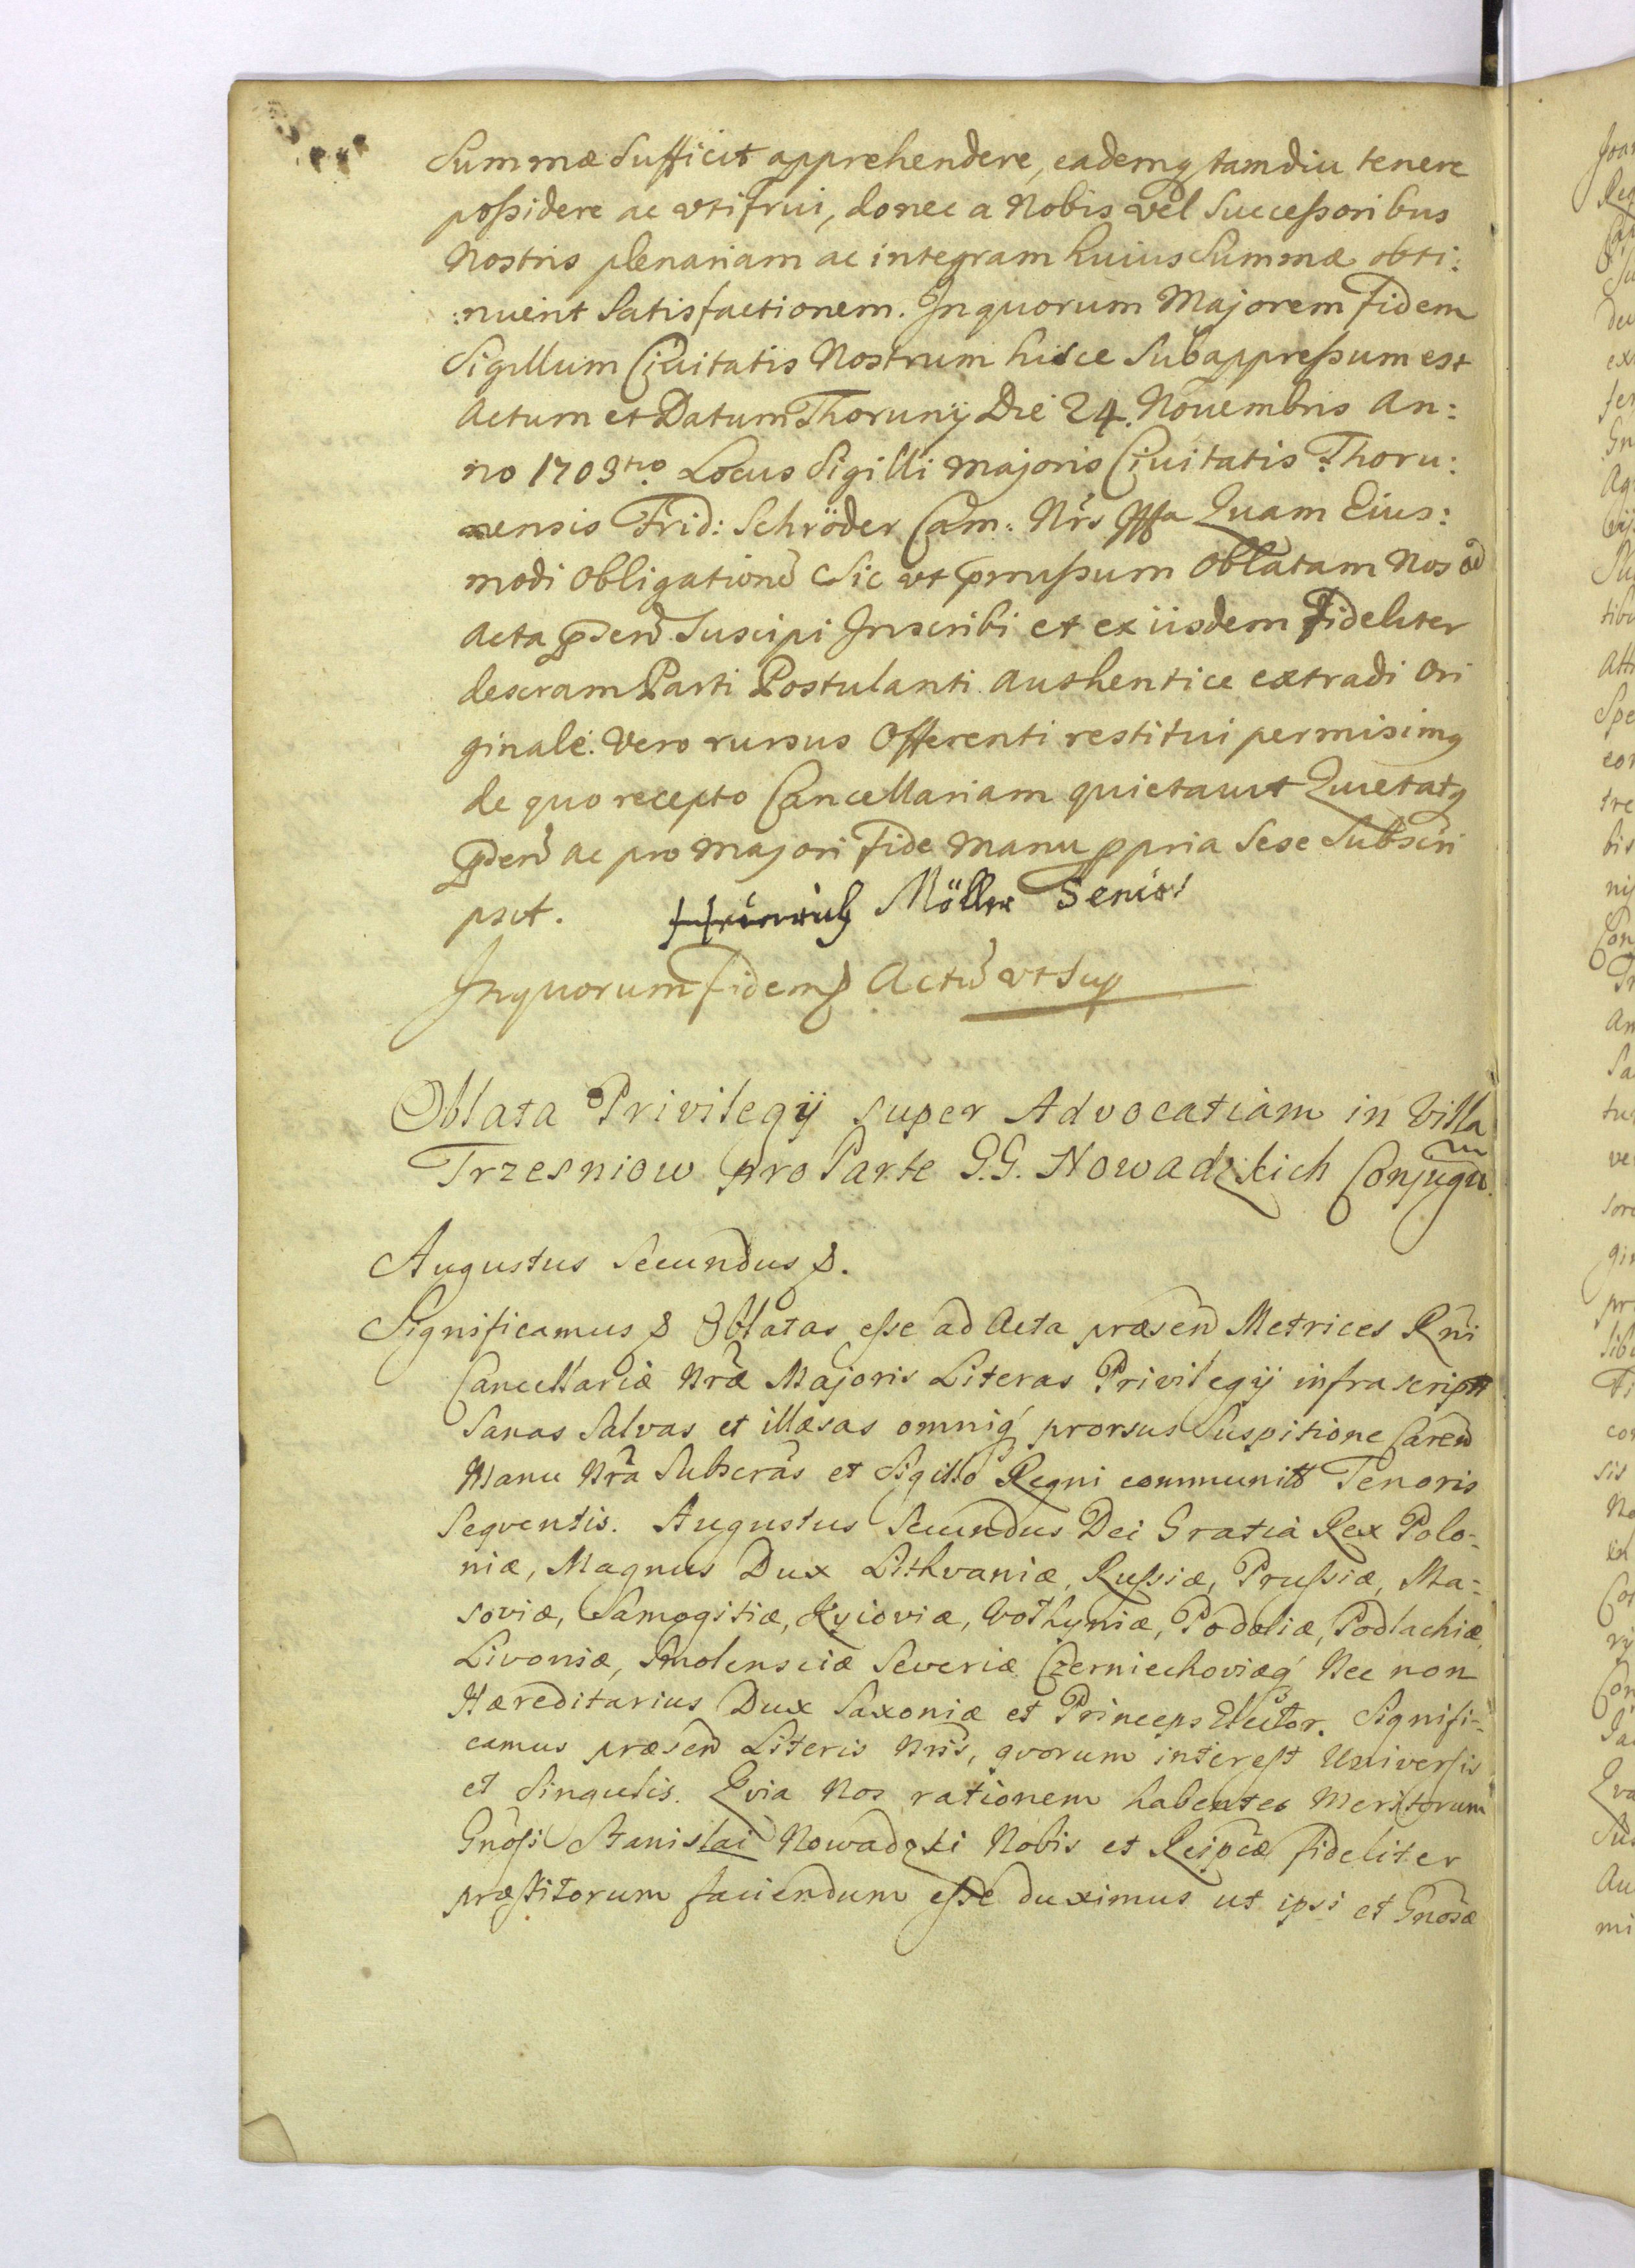 Summæ Sufficit apprehendere, eademq tamdiu tenere
possidere ac vtifrui, donec a Nobis vel Successoribus
Nostris plenariam ac integram huius Summæ obti:
:nuerit Satisfactionem. In quorum Majorem fidem
Sigillum Ciuitatis Nostrum hisce Subappressum est
Actum et Datum Thorunij Die 24. Nouembris An:
no 1703tio Locus Sigilli Majoris Ciuitatis Thoru:
nensis Frid: Schröder Cam: Nrs Quam Eius:
modi Obligationē Sic vt prmissum Oblatam Nos ad
Acta pden Suscipi Inscribi et ex iisdem fideliter
descram Parti Postulanti Authentice extradi Ori
ginale. Vero rursus Offerenti restitui permisimq
de quo recepto Cancellariam quietauit Quietatq
pden ac pro Majori fide Manu ppria Sese Subscri
psit. Heinrich Möller Senior
In quorum fidem & Actū vt Sup
Oblata Privilegij super Advocatiam in Villa
Trzesniow pro Parte G.G. Nowadzkich Conjugū
Augustus Secundus &.
Significamus & Oblatas esse ad Acta præsen Metrices Rni
Cancellariæ Nræ Majoris Literas Privilegij infrascript
Sanas Salvas et illæsas omniq prorsus Suspitione Caren
Manu Nra Subscras et Sigillo Regni communitt Tenoris
Seqventis. Augustus Secundus Dei Gratia Rex Polo-
niæ, Magnus Dux Lithvaniæ, Russiæ, Prussiæ, Ma-
soviæ, Samogitiæ, Kyioviæ, Volhyniæ, Podoliæ, Podlachiæ,
Livoniæ, Smolensciæ Severiæ Czerniechoviæq Nec non
Hæreditarius Dux Saxoniæ et Princeps Elector. Signifi-
camus præsen Literis Nris, qvorum interest Universis
et Singulis. Qvia Nos rationem habentes Meritorum
Gnosi Stanislai Nowadzki Nobis et Reipcæ fideliter
præstitorum faciendum esse duximus ut ipsi et Gnosæ